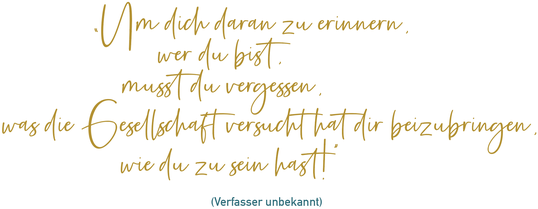 "Um dich daran zu erinnern,
wer du bist,
musst du vergessen,
was die Gesellschaft versucht hat dir beizubringen,
wie du zu sein hast!"
(Verfasser unbekannt)